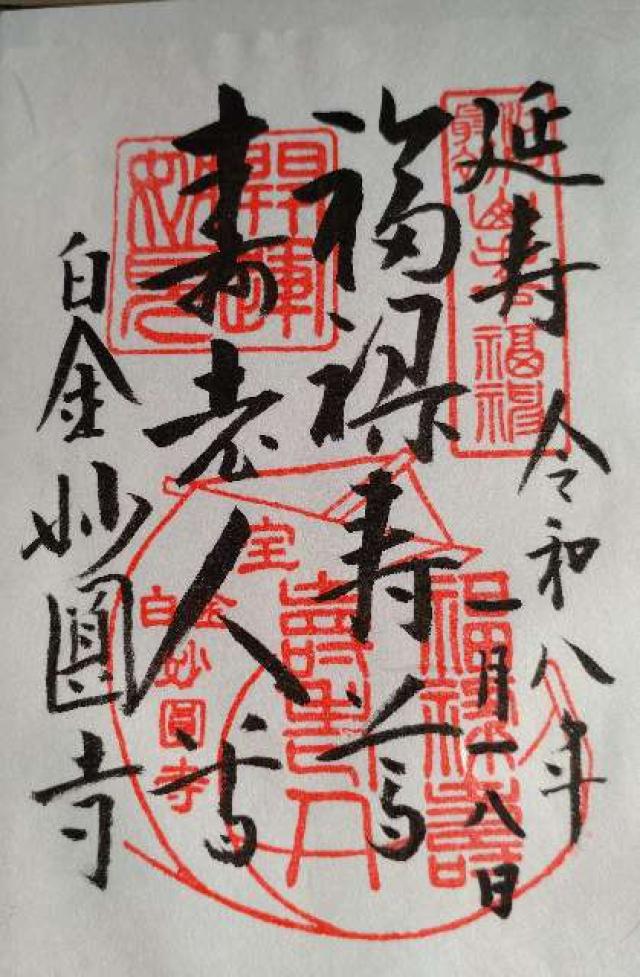 延寿
令和八年
一月一八日
福禄寿尊
寿老人尊
白金妙圓寺
開運
福禄寿
壽老人
宝
白金
妙圓寺